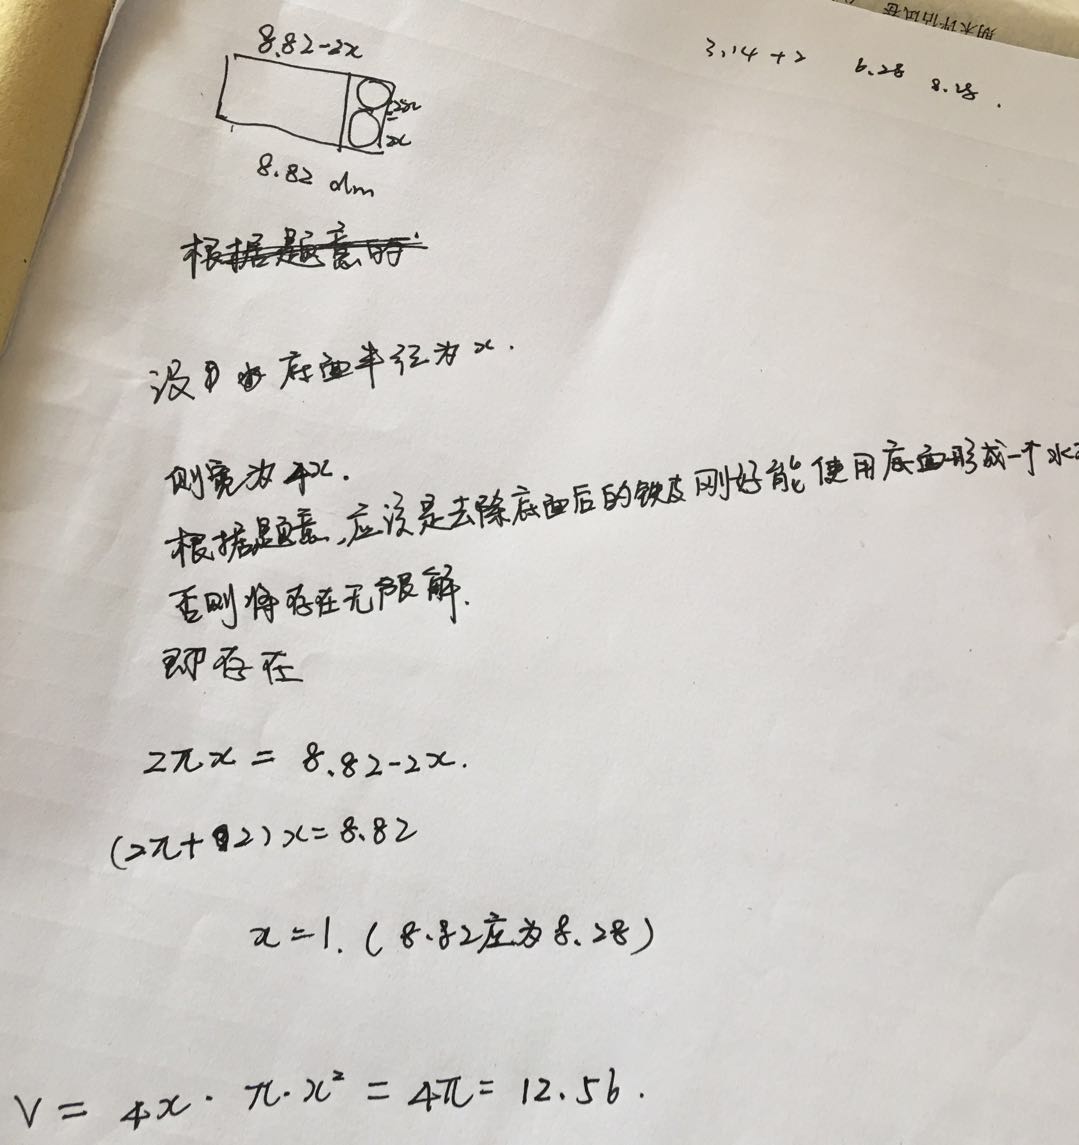 期末评估试卷
3.14+2 6.28 8.28.
8.82-2x
2x
x
8.82 dm
根据题意的
设 底面半径为x.
则宽为4x.
根据题意,应该是去除底面后的铁皮刚好能使用底面形成一个水
否则将存在无限解.
即存在
2πx = 8.82-2x.
(2π+2)x=8.82
x=1.(8.82应为8.28)
V= 4x·π·x²=4π=12.56.